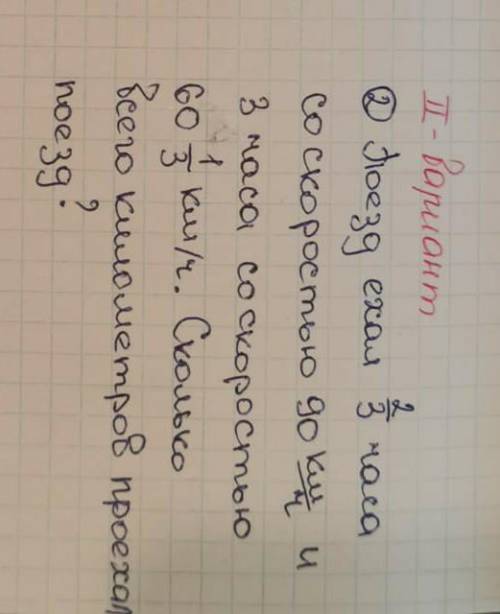 II-вариант
② Поезд ехал 2/3 часа
со скоростью 90 км/ч и
3 часа со скоростью
60 1/3 км/ч. Сколько
всего километров проехал
поезд?